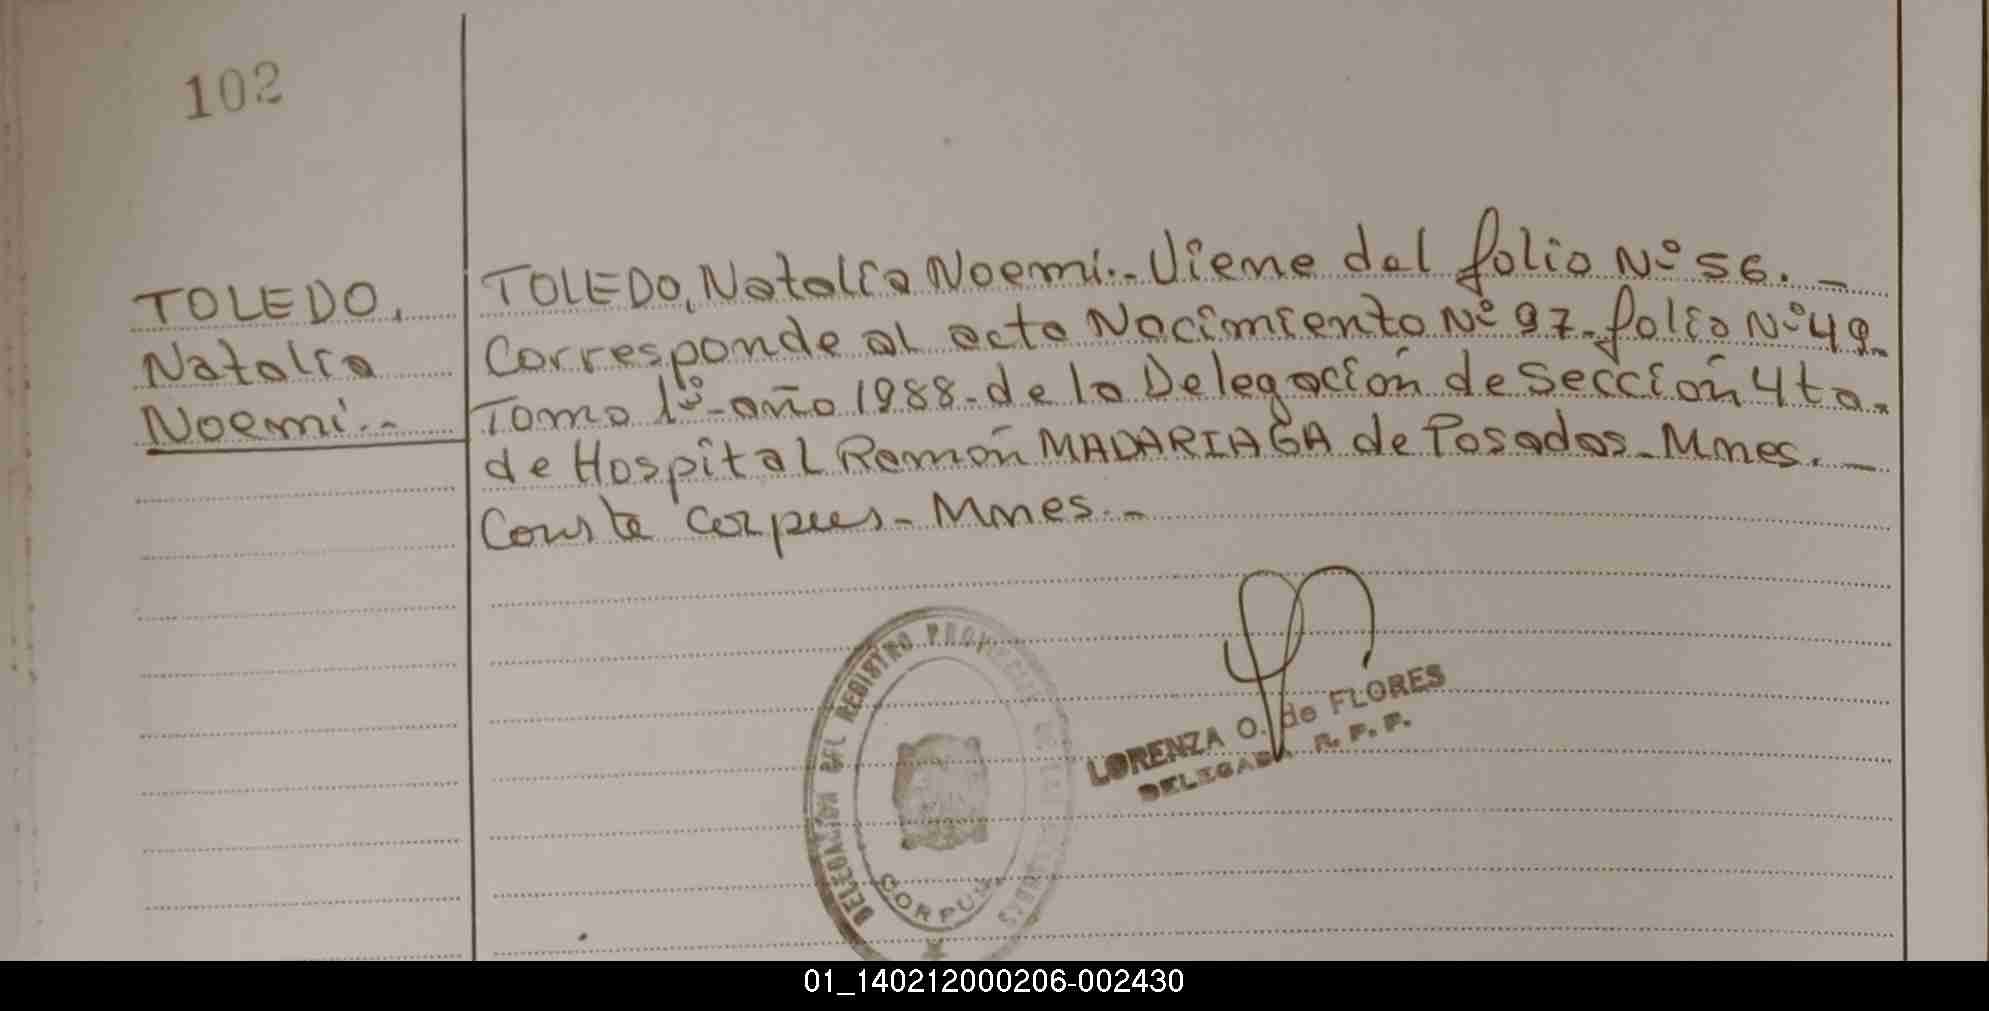 102
TOLEDO,
Natalia
Noemi.-
TOLEDO, Natalia Noemi.- Viene del folio Nº 56. _
Corresponde al acta Nacimiento Nº 97- folio Nº 49-
Tomo 1º- año 1988- de la Delegación de Sección 4ta.
de Hospital Ramón MADARIAGA de Posadas- Mnes. _
Conste Corpus- Mnes.-
DELEGACIÓN DEL REGISTRO
CORPUS
LORENZA O. de FLORES
DELEGADA R. P. P.
01_140212000206-002430